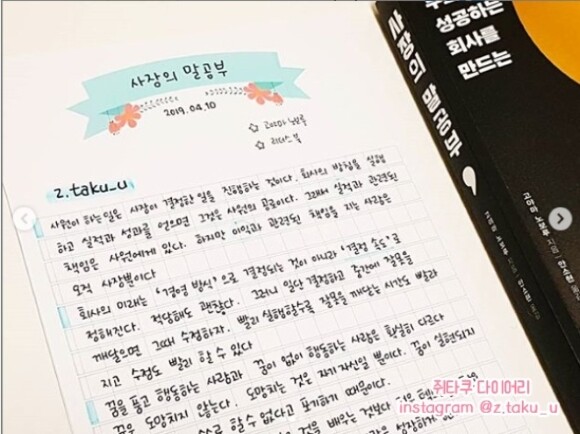 사장의 말공부
2019.04.10
☆ 고야마 노보루
☆ 리더스북
z.taku_u
사원이 하는 일은 사장이 결정한 일을 진행하는 것이다. 회사의 방침을 실행
하고 실적과 성과를 얻으면 그것은 사원의 공이다. 그래서 실적과 관련된
책임은 사원에게 있다. 하지만 이익과 관련된 책임을 지는 사람은
오직 사장뿐이다
회사의 미래는 '경영 방식'으로 결정되는 것이 아니라 '결정 속도'로
정해진다. 적당해도 괜찮다. 그러니 일단 결정하고 중간에 잘못을
깨달으면 그때 수정하자. 빨리 실행할수록 잘못을 깨닫는 시간도 빨라
지고 수정도 빨리 할 수 있다
꿈을 품고 행동하는 사람과 꿈이 없이 행동하는 사람은 확실히 다르다
꿈은 도망치지 않는다. 도망치는 것은 자기 자신일 뿐이다. 꿈이 실현되지
스스로 할 수 없다고 포기하기 때문이다.
것을 배우는 것보다
성공하는
회사를
만드는
사장의 말공부
고야마 노보루 지음
안소현 옮김
쥐타쿠 다이어리
instagram @z.taku_u